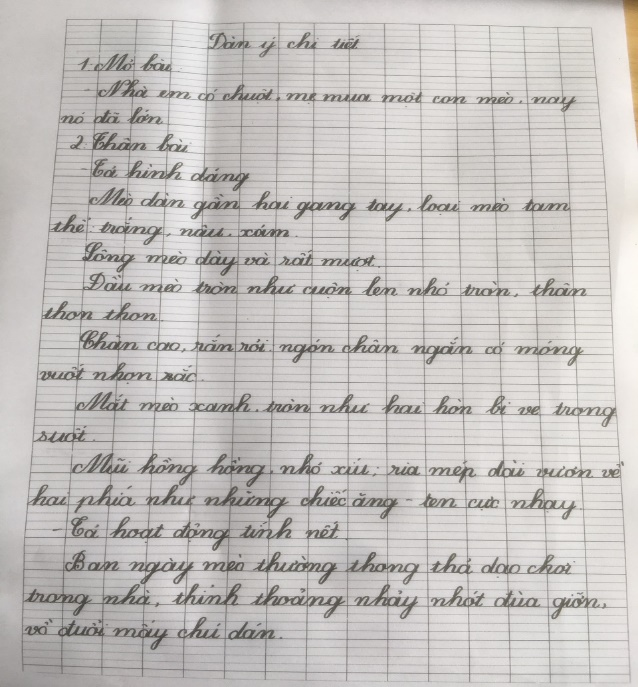 Dàn ý chi tiết
1. Mở bài
- Nhà em có chuột, mẹ mua một con mèo, nay
nó đã lớn
2. Thân bài
- Tả hình dáng
Mèo dàn gần hai gang tay, loại mèo tam
thể: trắng, nâu, xám.
Lông mèo dày và rất mượt.
Đầu mèo tròn như cuộn len nhỏ tròn, thân
thon thon.
Chân cao, rắn rỏi, ngón chân ngắn có móng
vuốt nhọn sắc.
Mắt mèo xanh, tròn như hai hòn bi ve trong
suốt.
Mũi hồng hồng, nhỏ xíu; ria mép dài vươn về
hai phía như những chiếc ăng-ten cực nhạy.
- Tả hoạt động tính nết.
Ban ngày mèo thường thong thả dạo chơi
trong nhà, thỉnh thoảng nhảy nhót đùa giỡn,
vồ đuổi mấy chú dán.